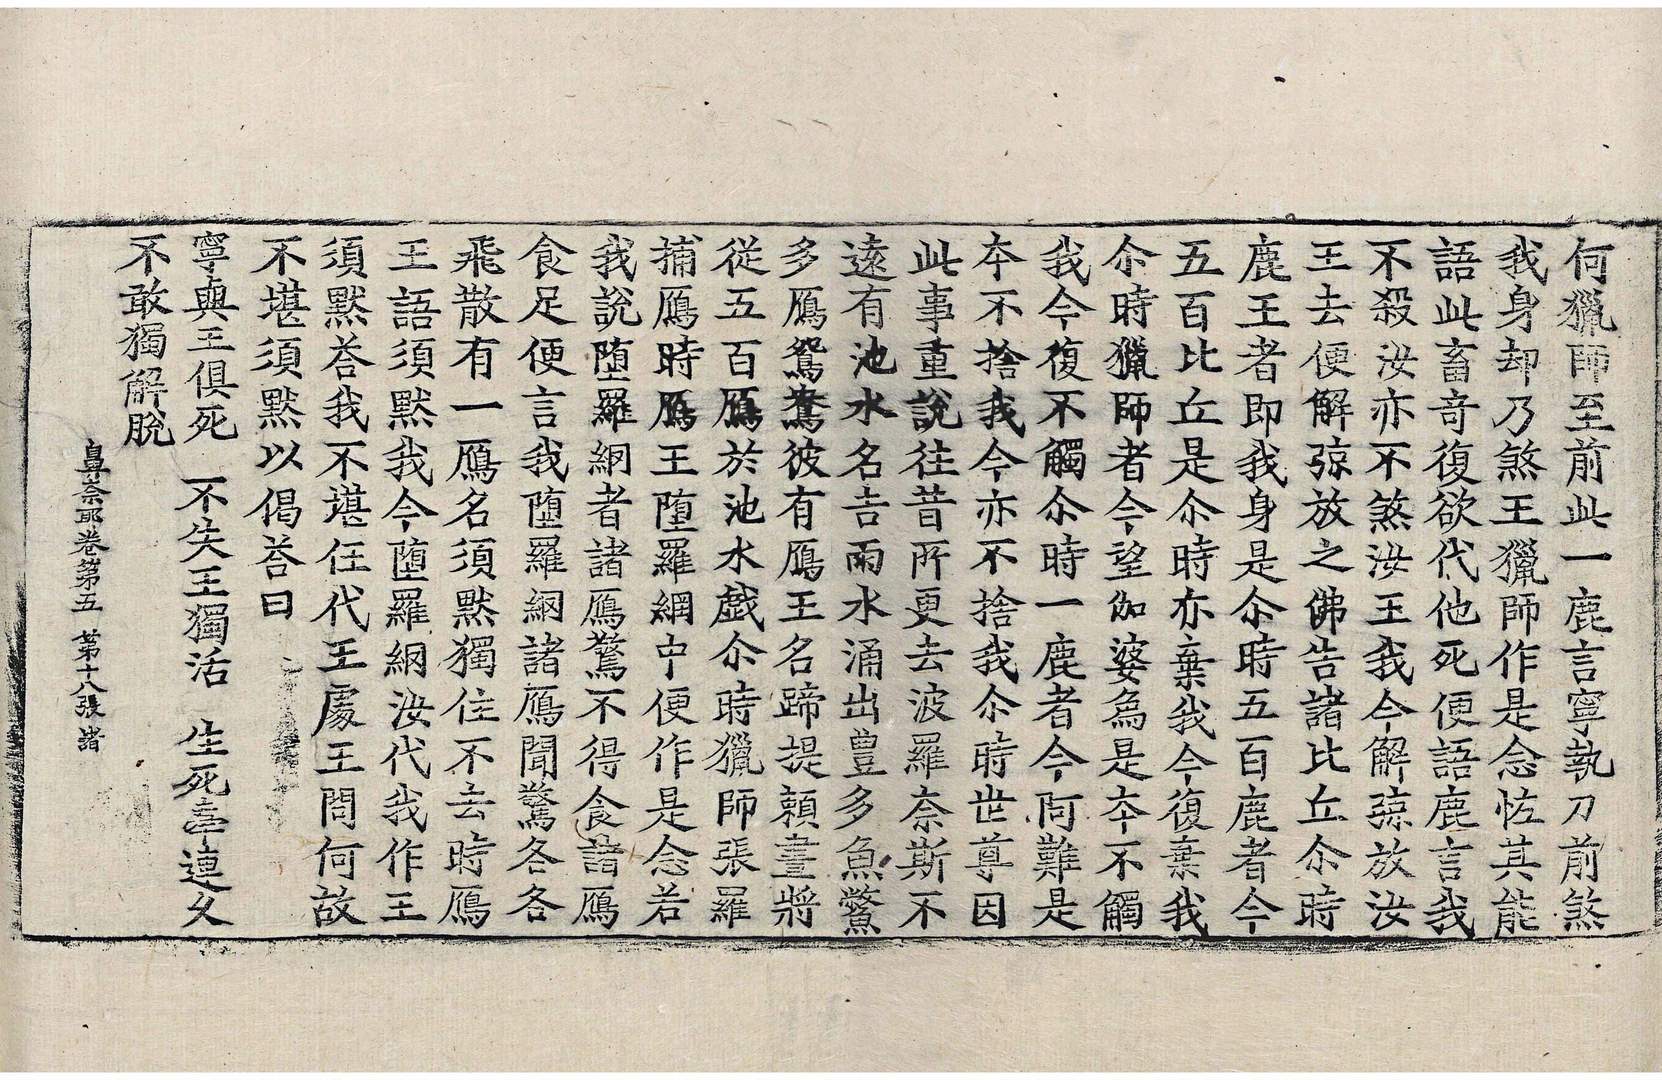 何獵師至前此一鹿言寧執刀前煞
我身却乃煞王獵師作是念恠其能
語此畜奇復欲代他死便語鹿言我
不殺汝亦不煞汝王我今解弶放汝
王去便解弶放之佛告諸比丘尒時
鹿王者即我身是尒時五百鹿者今
五百比丘是尒時亦棄我今復棄我
尒時獵師者今望伽婆爲是夲不觸
我今復不觸尒時一鹿者今阿難是
夲不捨我今亦不捨我尒時世尊因
此事重說往昔所更去波羅奈斯不
遠有池水名吉雨水涌出豊多魚鱉
多鴈鴛鴦彼有鴈王名蹄提頼晝將
從五百鴈於池水戯尒時獵師張羅
捕鴈時鴈王墮羅網中便作是念若
我說墮羅網者諸鴈驚不得食諸鴈
食足便言我墮羅網諸鴈聞驚各各
飛散有一鴈名須默獨住不去時鴈
王語須默我今墮羅網汝代我作王
須默荅我不堪任代王處王問何故
不堪須默以偈荅曰
寧與王俱死　不失王獨活　生死連久
不敢獨解脫
鼻奈耶卷第五　第十八張　諸